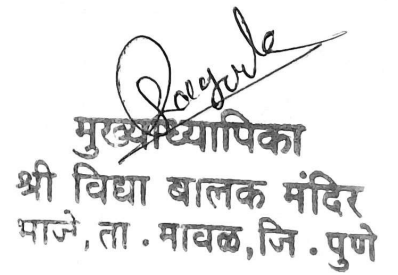 मुख्याध्यापिका
श्री विद्या बालक मंदिर
भाजे, ता. मावळ, जि. पुणे